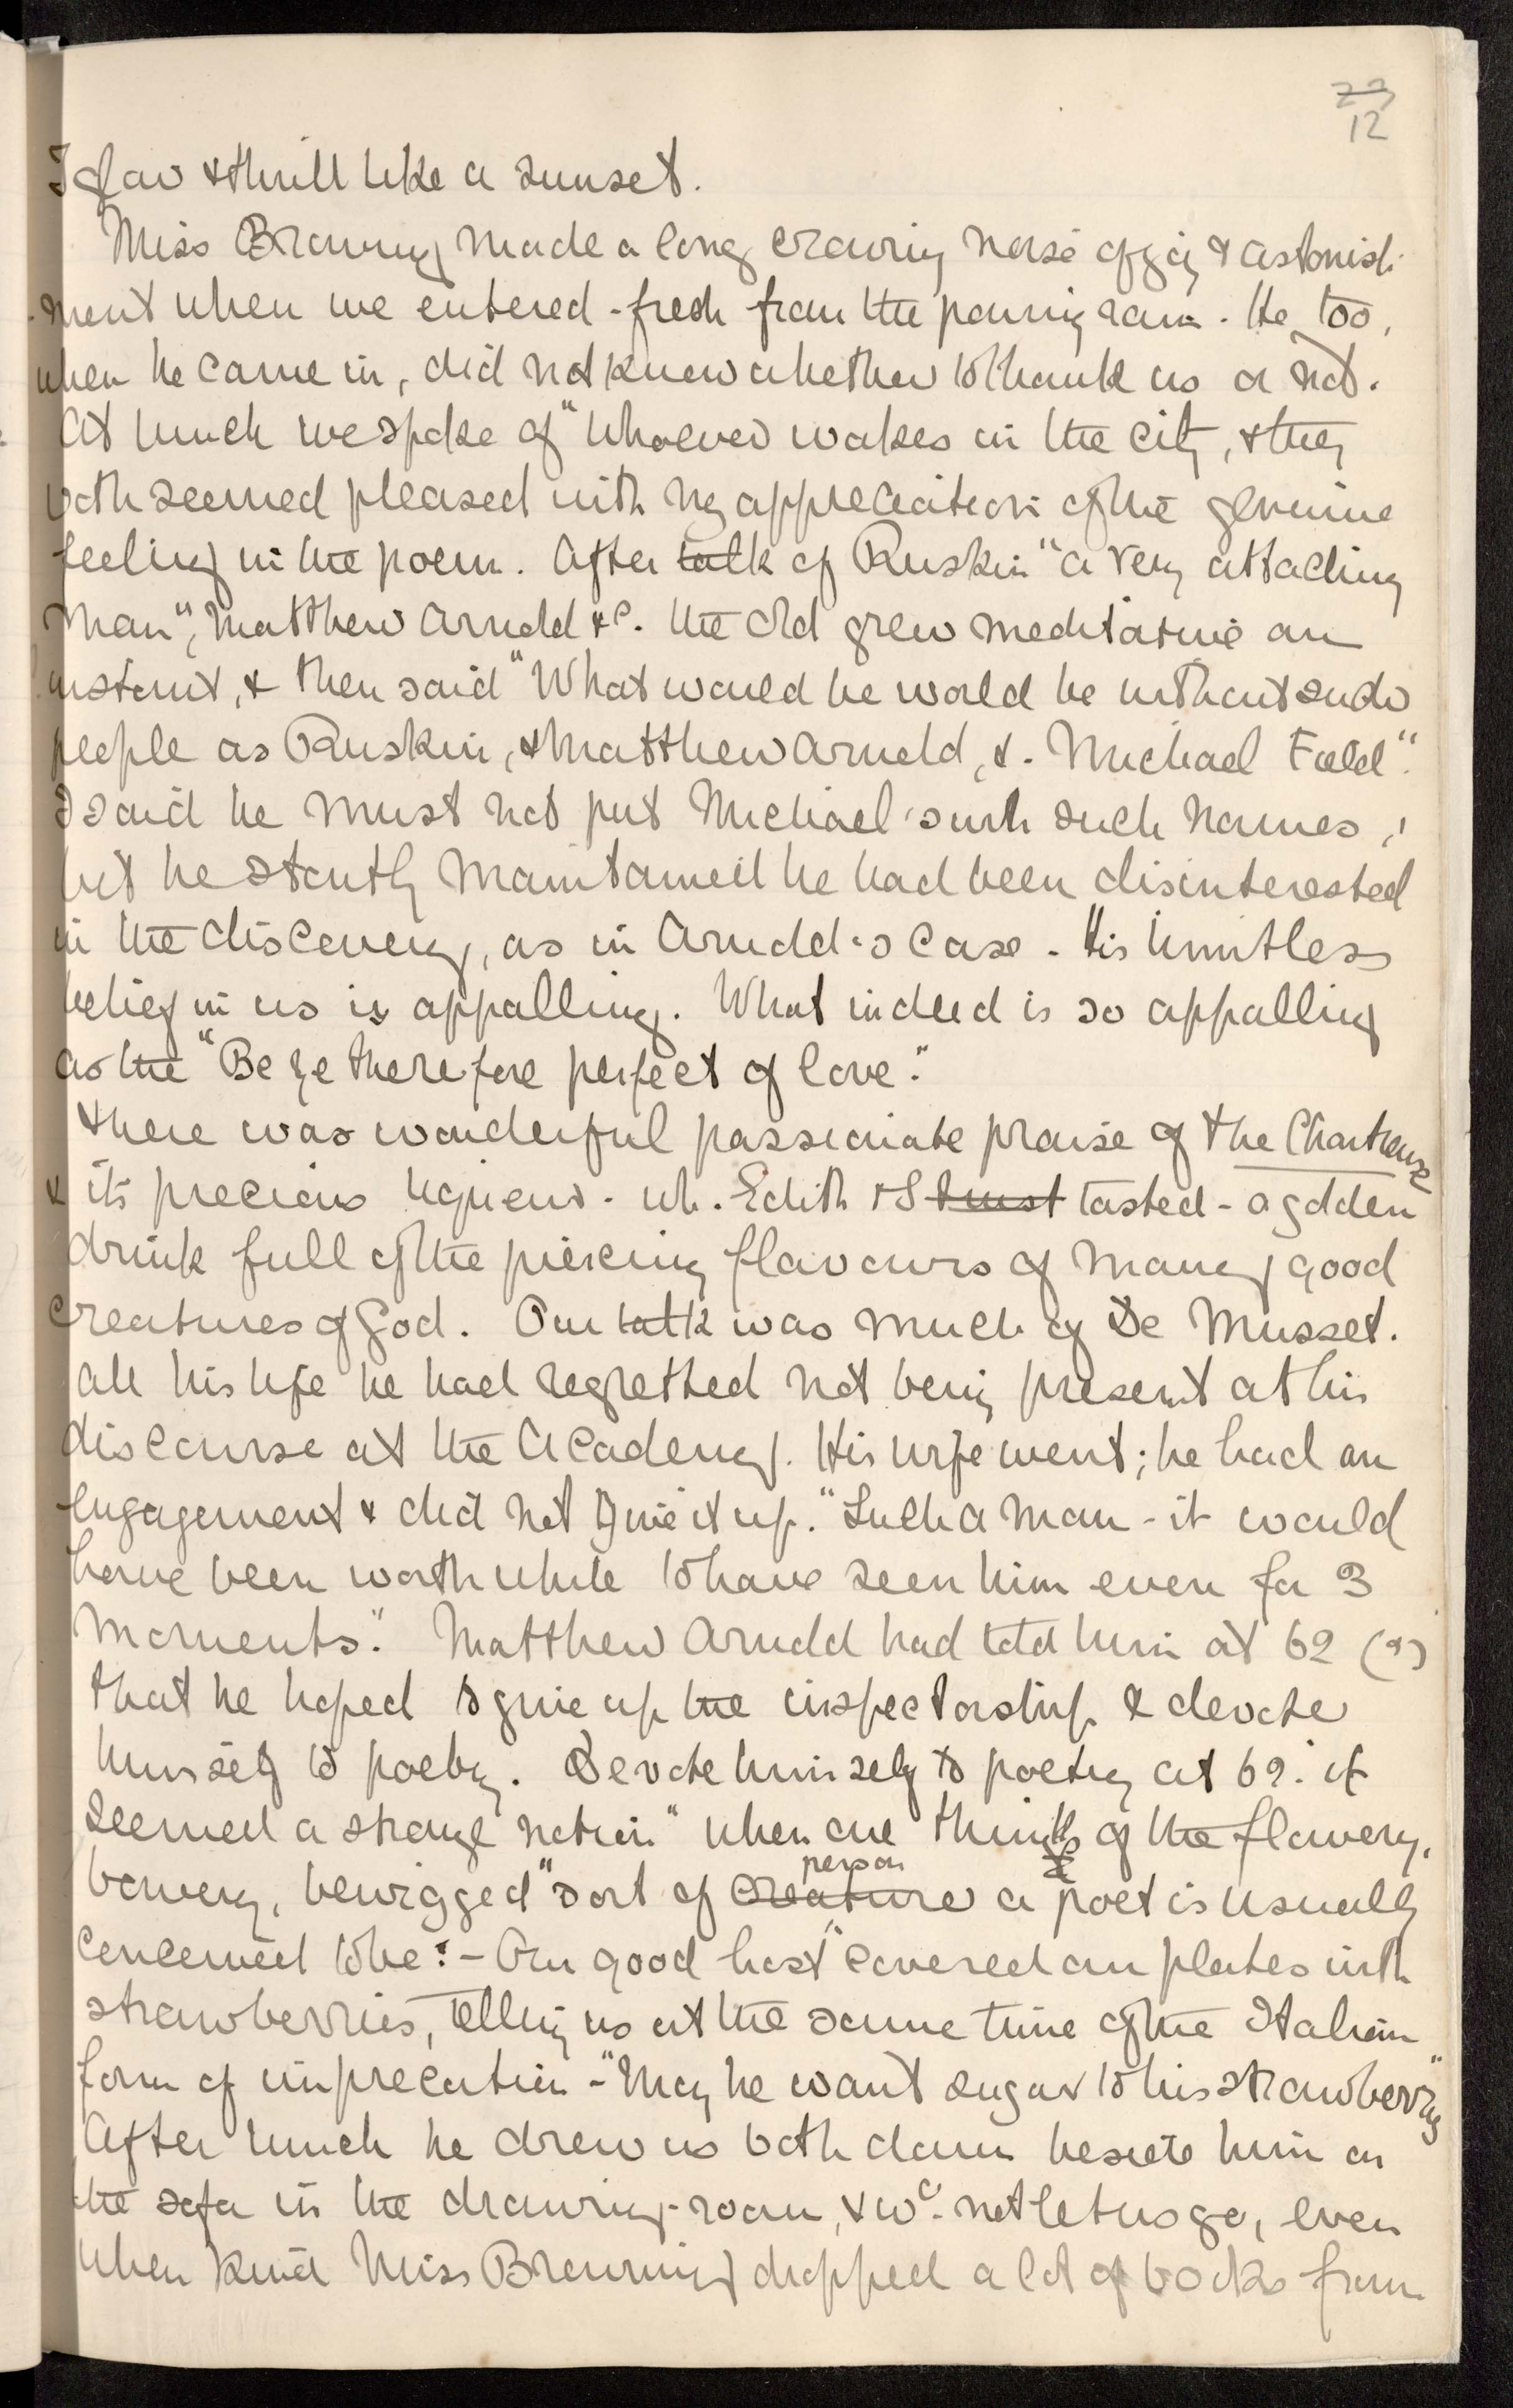 23
12
I glow & thrill like a sunset.
Miss Browning made a long crowing noise of joy & astonish-
-ment when we entered - fresh from the pouring rain. He too,
when he came in, did not know whether to thank us or not.
At lunch we spoke of "Whoever wakes in the city, & they
both seemed pleased with my appreciation of the genuine
feeling in the poem. After talk of Ruskin "a very attaching
man", Matthew Arnold &c. the Old grew meditative an
instant, & then said "What would he world be without such
people as Ruskin, & Matthew Arnold, &. Michael Field".
I said he must not put Michael's with such names,!
but he stoutly maintained he had been disinterested
in the discovery, as in Arnold's case. His limitless
belief in us is appalling. What indeed is so appalling
as the "Be ye therefore perfect of love."
There was wonderful passionate praise of the Chartreuse
& its precious liqueur - wh. Edith & I trust tasted - a golden
drink full of the piercing flavours of many good
creatures of God. Our talk was much of De Musset.
All his life he had regretted not being present at his
discourse at the Academy. His wife went; he had an
engagement & did not give it up. "Such a man - it would
have been worth while to have seen him even for 3
moments." Matthew Arnold had told him at 62 (?)
that he hoped to give up the inspectorship & devote
himself to poetry. Devote himself to poetry at 62. it
seemed a strange notion "when one thinks of the flowery,
bowery, bewigged" sort of creature person a poet is usually
conceived to be: - Our good host covered our plates with
strawberries, telling us at the same time of the Italian
form of imprecation - "May he want sugar to his strawberry"
After lunch he drew us both down beside him on
the sofa in the drawing-room, & wd. not let us go, even
when kind Miss Browning dropped a lot of books from